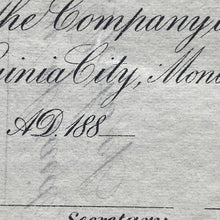 the Company
inia City, Mon
A.D. 188
Secretary